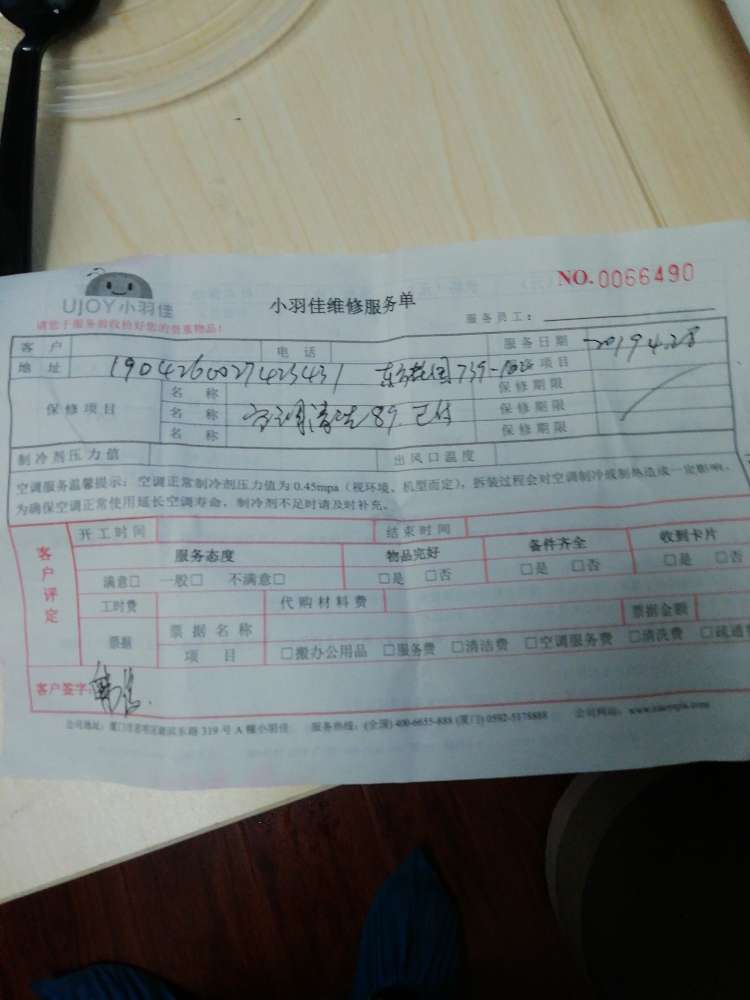 NO.0066490
UJOY小羽佳
小羽佳维修服务单
请您于服务前收拾好您的贵重物品!
服务员工:
客 户 电 话 服务日期 2019.4.28
地 址 1904260027425431 项目
名 称 保修期限
保修项目 名 称 空调清洗89.已付 保修期限
名 称 保修期限
制冷剂压力值 出风口温度
空调服务温馨提示:空调正常制冷剂压力值为0.45mpa(视环境、机型而定),拆装过程会对空调制冷或制热造成一定影响,
为确保空调正常使用延长空调寿命,制冷剂不足时请及时补充。
客户评定
开工时间 结束时间
服务态度 物品完好 备件齐全 收到卡片
满意□ 一般□ 不满意□ □是 □否 □是 □否 □是 □否
工时费 代购材料费
票据 票据名称 票据金额
项 目 □搬办公用品 □服务费 □清洁费 □空调服务费 □清洗费 □疏通
客户签字:
公司地址:厦门市 319号A幢小羽佳 服务热线:(全国)400-6655-888(厦门)0592-5178888 公司网站: